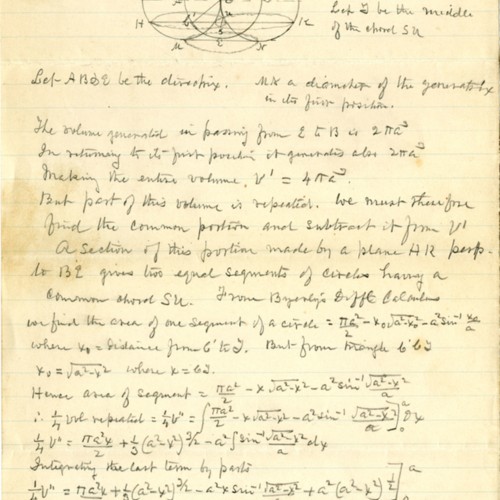 Let I be the middle
of the chord SU
H
K
M
E
N
Let ABDE be the directrix. MN a diameter of the generatrix
in its first position.
The volume generated in passing from E to B is 2πa³
In returning to its first position it generates also 2πa³
Making the entire volume, V' = 4πa³.
But part of this volume is repeated. We must therefore
find the common portion and subtract it from V'
A section of this portion made by a plane HK perp.
to BE gives two equal segments of circles having a
common chord SU. From Byerly's Diffl Calculus
we find the area of one segment of a circle = πa²/2 - x₀√(a²-x₀²) - a² sin⁻¹ x₀/a
where x₀ = distance from b' to I. But from triangle b'bI
x₀ = √(a²-x²) where x = bI.
Hence area of segment = πa²/2 - x√(a²-x²) - a² sin⁻¹ √(a²-x²)/a
∴ ¼ vol repeated = ¼V'' = ∫[πa²/2 - x√(a²-x²) - a² sin⁻¹ √(a²-x²)/a]₀ᵃ dx
¼V'' = πa²x/2 + ⅓(a²-x²)^3/2 - a²∫sin⁻¹ √(a²-x²)/a dx
Integrating the last term by parts
¼V'' = πa²x/2 + ⅓(a²-x²)^3/2 - a²x sin⁻¹ √(a²-x²)/a + a²(a²-x²)^½]ᵃ